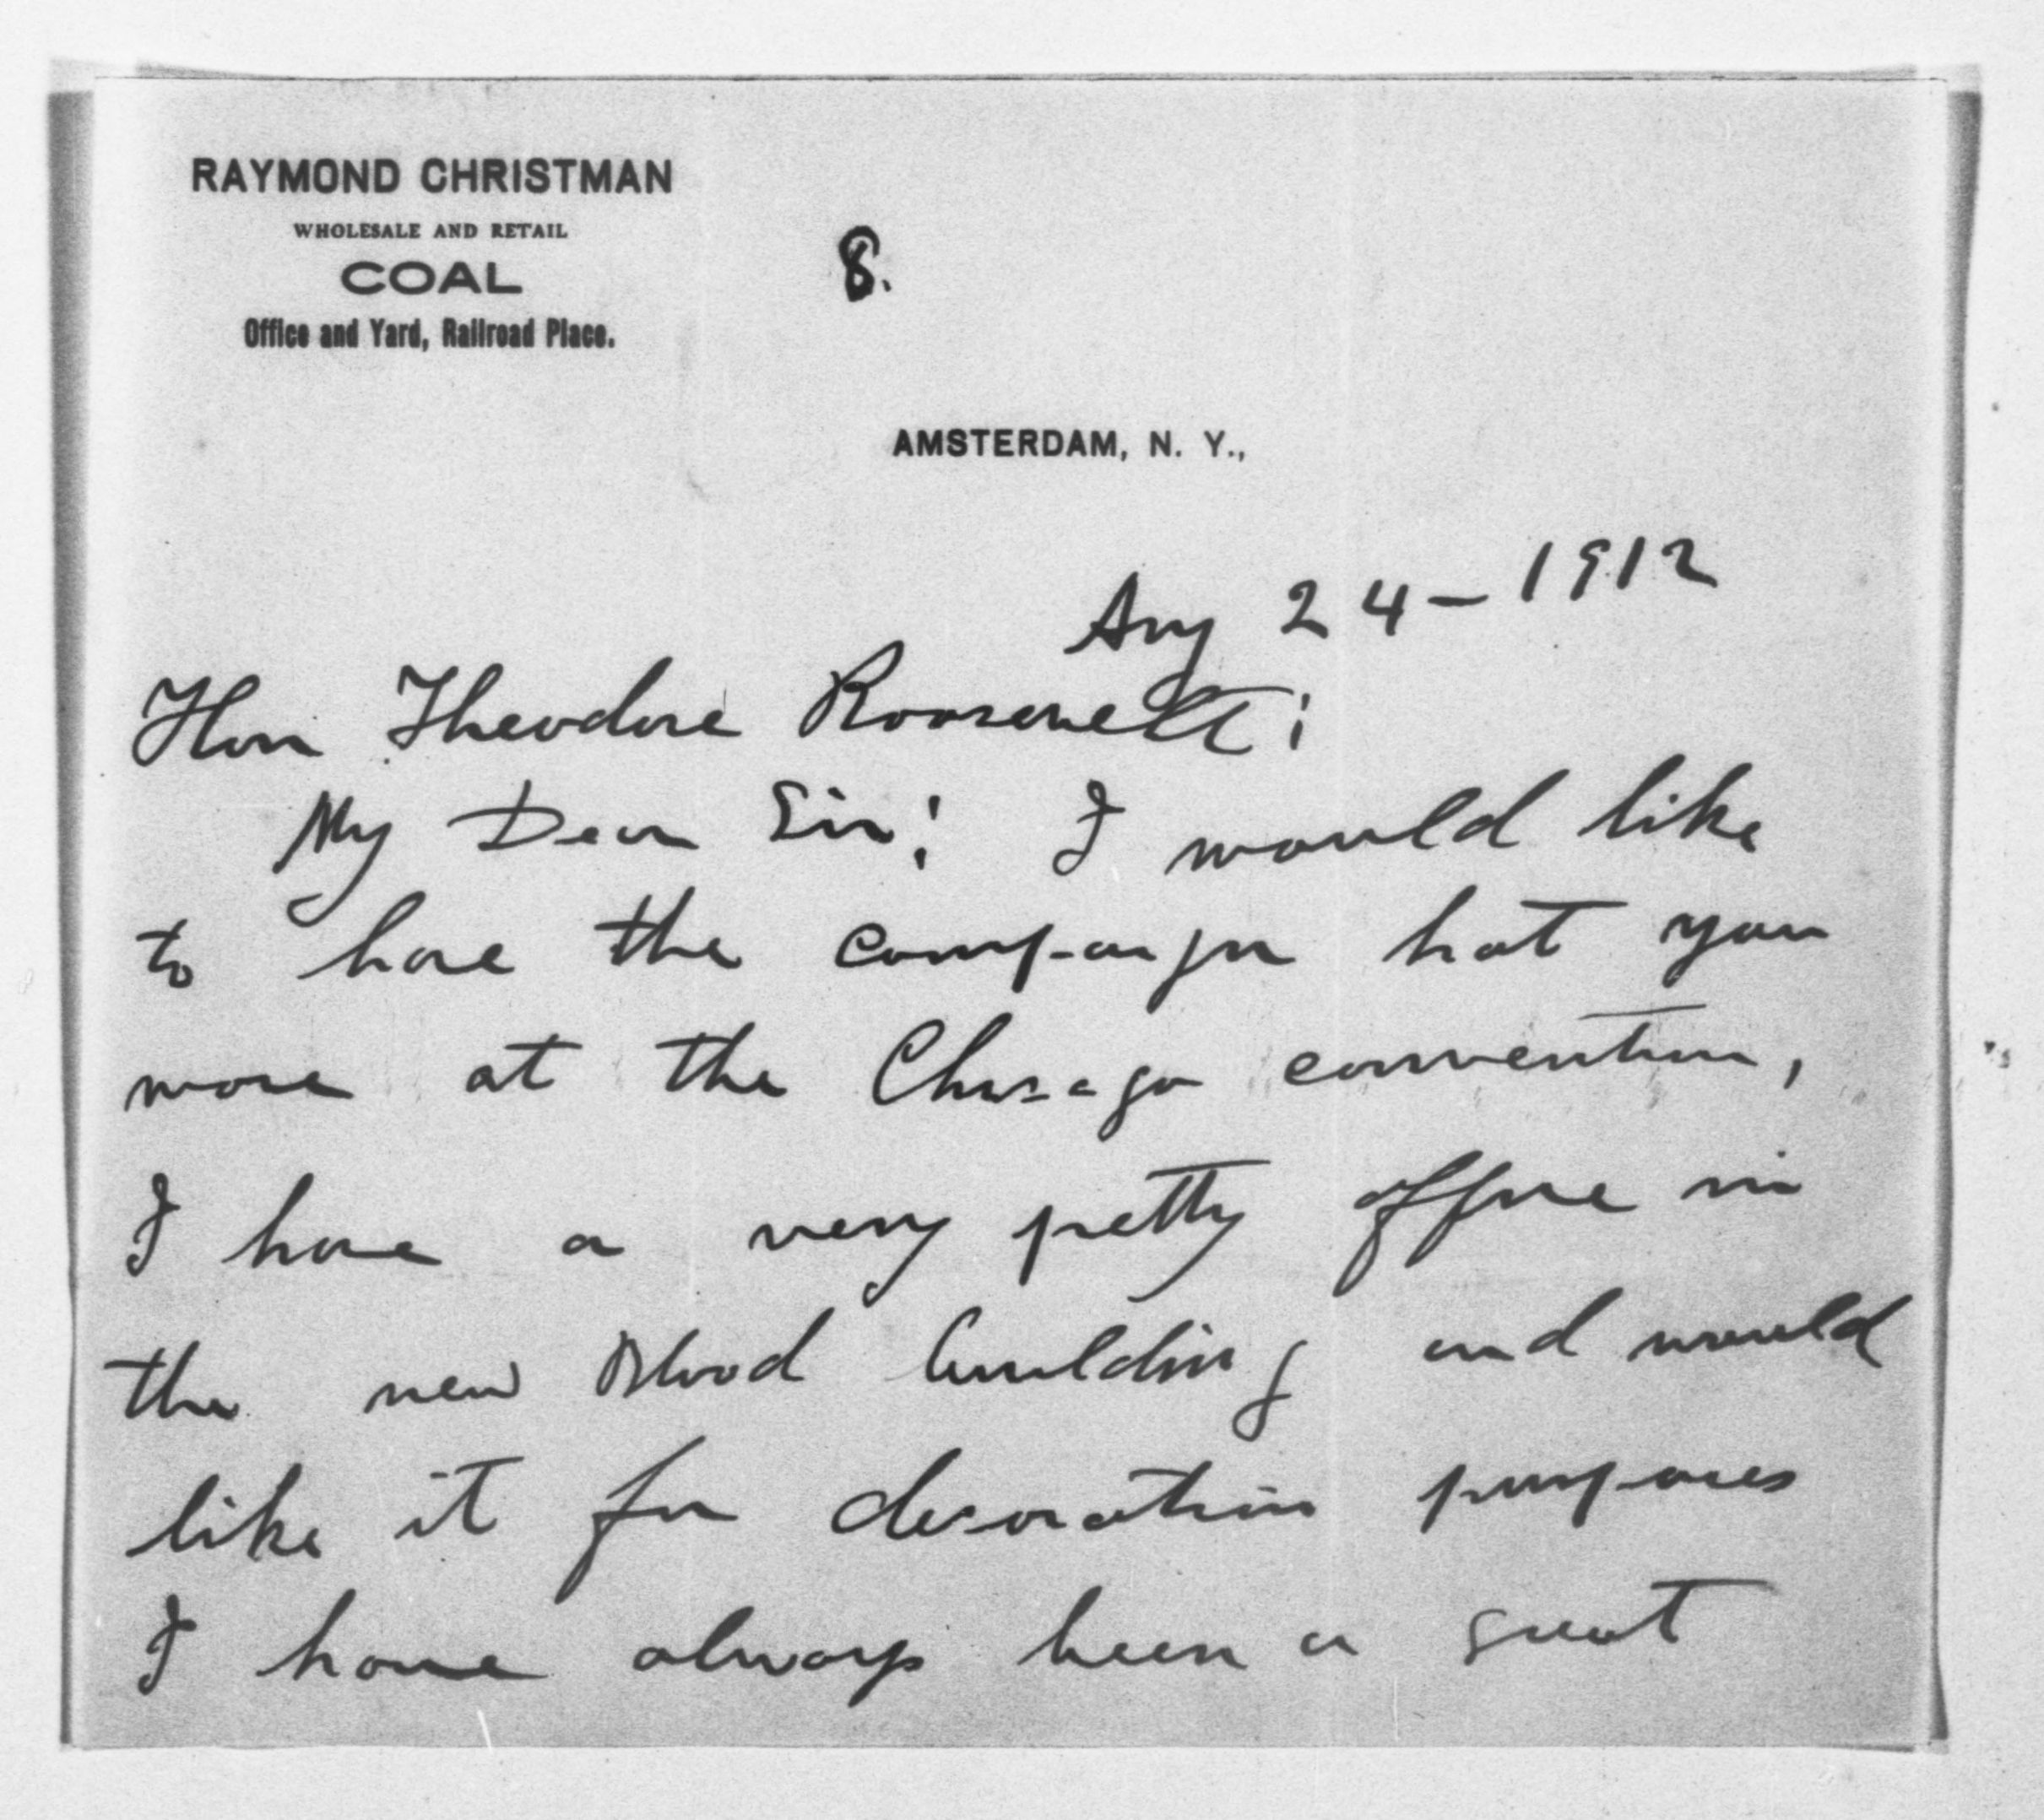 RAYMOND CHRISTMAN
WHOLESALE AND RETAIL
COAL
Office and Yard, Railroad Place.
8.
AMSTERDAM, N. Y.,
Aug 24-1912
Hon Theodore Roosevelt:
My Dear Sir: I would like
to have the campaign hat you
wore at the Chicago convention,
I have a very pretty office in
the new Blood building and would
like it for decoration purposes
I have always been a great